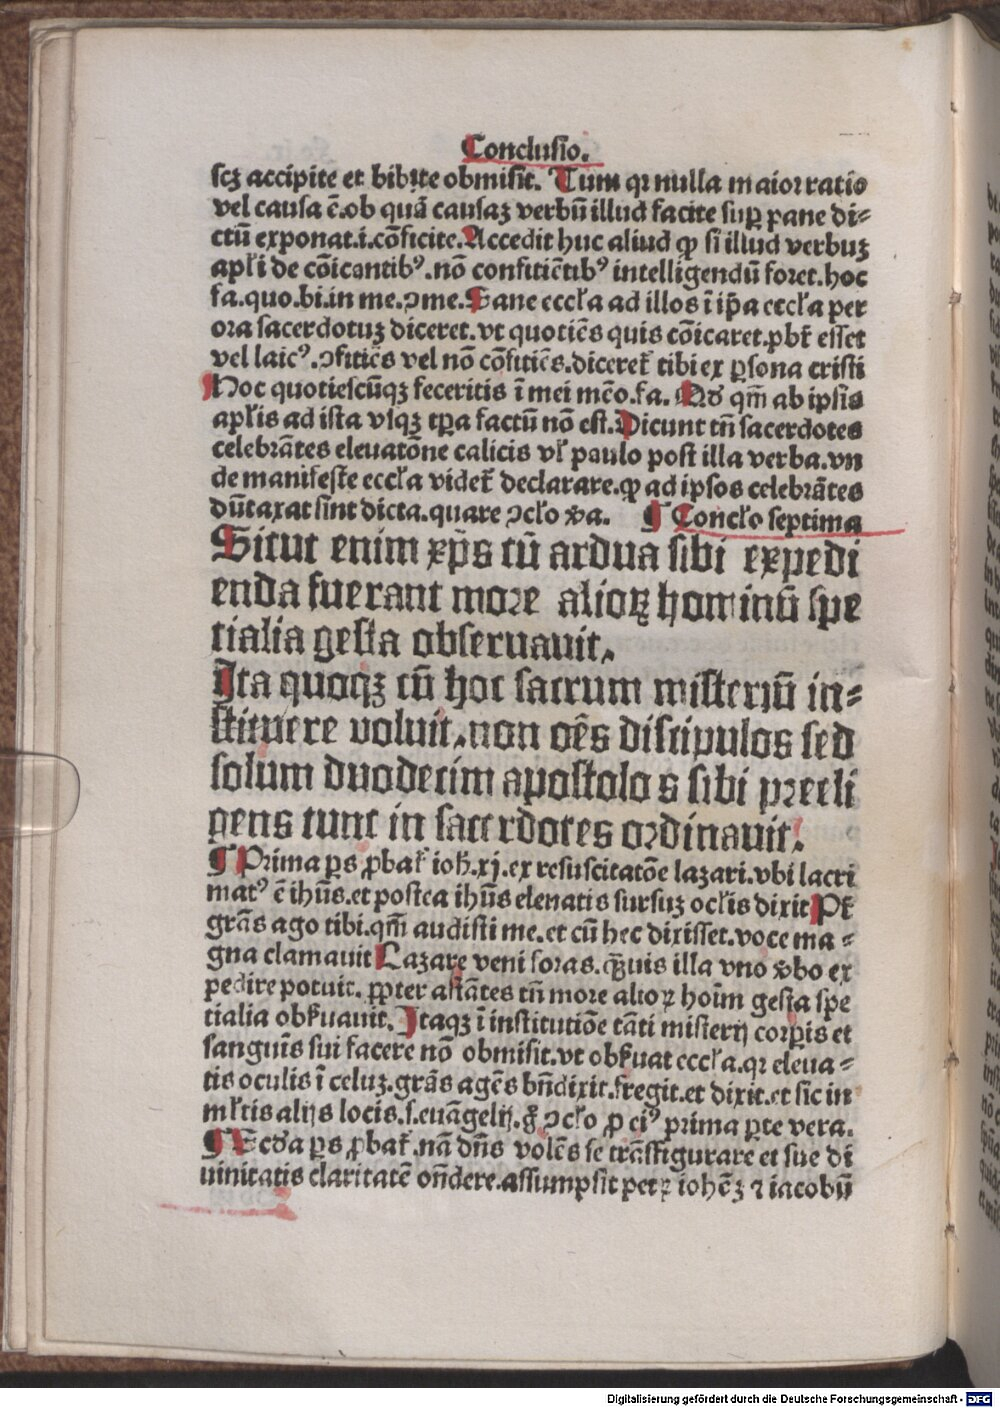 Conclusio.
scꝫ accipite et bibite obmisit. Tum qꝛ nulla maior ratio
vel causa ē.ob quā causaꝫ verbū illud facite suꝑ pane di⸗
ctū exponat.i.cōficite.Accedit huc aliud ꝙ si illud verbuꝫ
apƚi de cōicantibꝰ.nō confitiētibꝰ intelligendū foret.hoc
fa.quo.bi.in me.ɔme.Sane eccƚa ad illos ī ip̄a eccƚa per
ora sacerdotuꝫ diceret.vt quotiēs quis cōicaret.pbr̄ esset
vel laicꝰ.ɔfitiēs vel nō cōfitiēs.diceret̄ tibi ex ꝑsona cristi
Hoc quotiescūqꝫ feceritis ī mei mēo.fa. Qd' qm̄ ab ipsis
apƚis ad ista vsqꝫ tꝑa factū nō est.Dicunt tn̄ sacerdotes
celebrātes eleuatōne calicis vƚ paulo post illa verba.vn
de manifeste eccƚa videt̄ declarare.ꝙ ad ipsos celebrātes
dūtaxat sint dicta.quare ɔcƚo v̄a. ¶ Concƚo septima
Sicut enim xp̄s cū ardua sibi expedi
enda fuerant more alioꝝ hominū spe
cialia gesta obseruauit.
Ita quoqꝫ cū hoc sacrum misteriū in⸗
stituere voluit.non oēs discipulos sed
solum duodecim apostolos sibi preeli
gens tunc in sacerdotes ordinauit.
¶ Prima ꝑs ꝓbat̄ ioh̄.xj.ex resuscitatōe lazari.vbi lacri
matꝰ ē ihūs.et postea ihūs eleuatis sursuꝫ ocƚis dixit Pr̄
grās ago tibi.qm̄ audisti me.et cū hec dixisset.voce ma⸗
gna clamauit Lazare veni foras.q̄uis illa vno v̄bo ex
pedire potuit. ꝓpter astātes tn̄ more alioꝝ hoīm gesta spe
cialia obs̄uauit. Itaqꝫ ī institutiōe tāti misterij corꝑis et
sanguīs sui facere nō obmisit.vt obs̄uat eccƚa.qꝛ eleua⸗
tis oculis ī celuꝫ.grās agēs bn̄dixit.fregit.et dixit.et sic in
mƚtis alijs locis.s.euāgelij. ɔcƚo ꝓ ciꝰ prima ꝑte vera.
¶ Scd'a ꝑs ꝓbat̄.nā dn̄s volēs se trāsfigurare et sue di
uinitatis claritatē on̄dere.assumpsit petꝝ iohēꝫ ⁊ iacobū
Digitalisierung gefördert durch die Deutsche Forschungsgemeinschaft - DFG